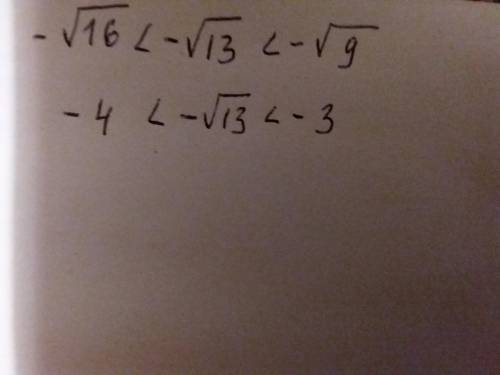 -√16 < -√13 < -√9
-4 < -√13 < -3